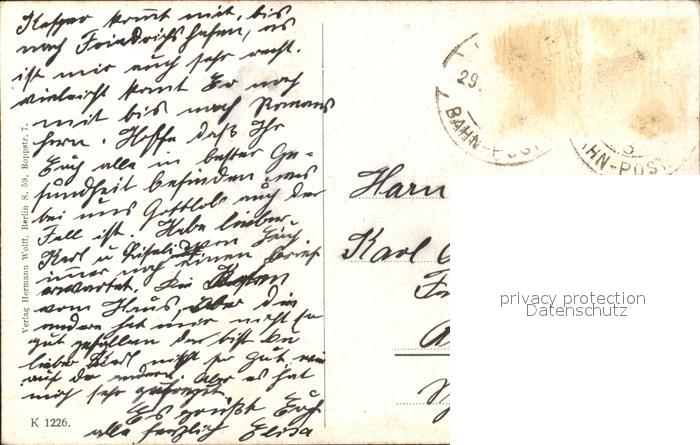 Kasper komt mit, bis
nach Friedrichshafen, es
ist mir auch sehr recht.
vieleicht komt Er noch
mit bis nach Romans
horn. Hoffe daß Ihr
Euch alle in bester Ge-
sundheit befinden, was
bei uns Gottlob auch der
Fall ist. Habe lieber
Karl u von Euch
immer noch einen Brief
erwartet. Die Karten
vom Haus, Aber die
andere hat mir nicht so
gut gefallen der bist Du
lieber Karl nicht so gut wie
auf der andern. Aber es hat
mich sehr gefreut
Es grüßt Euch
alle herzlich Elisa
Verlag Hermann Wolff, Berlin S. 59, Boppstr. 7.
K 1226.
29.
BAHN-POST
BAHN-POST
Harn
Karl
privacy protection
Datenschutz